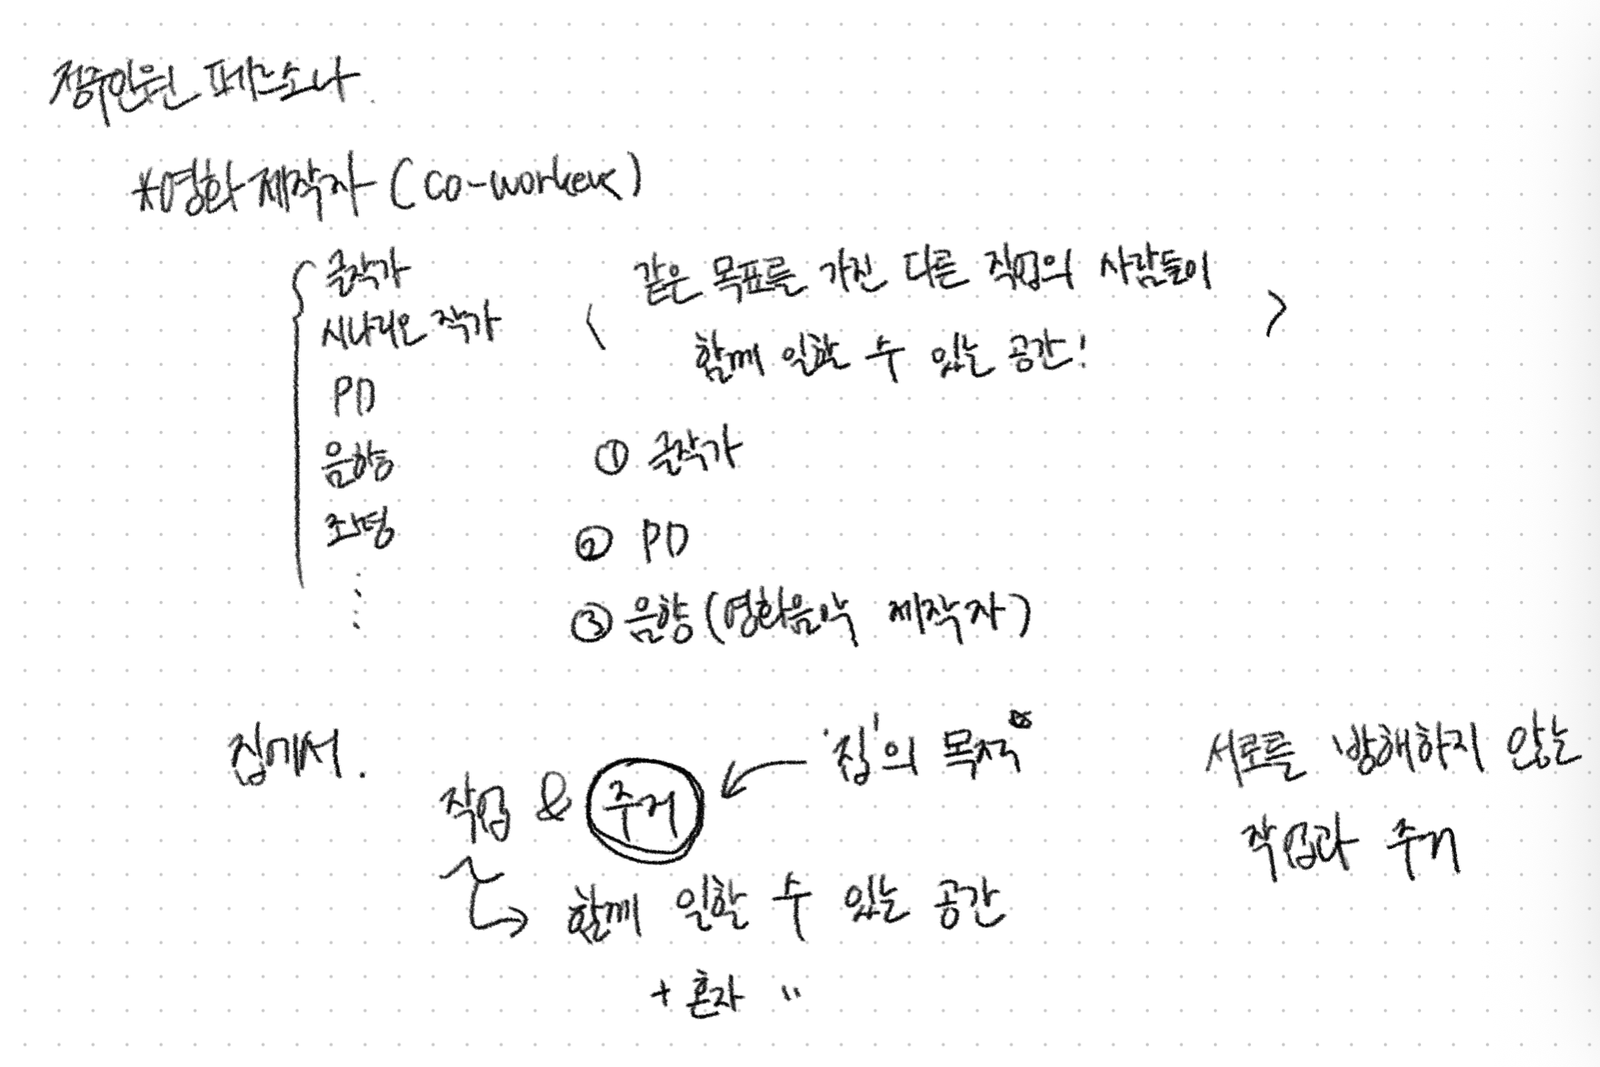 정주인원 페르소나
*영화 제작자 (co-workers)
글작가
시나리오 작가
PD
음향
촬영
⋮
< 같은 목표를 가진 다른 직업의 사람들이
함께 일할 수 있는 공간! >
① 글작가
② PD
③ 음향 (영화음악 제작자)
집에서.
작업 & 주거 ← '집'의 목적
→ 함께 일할 수 있는 공간
+ 혼자 〃
서로를 방해하지 않는
작업과 주거